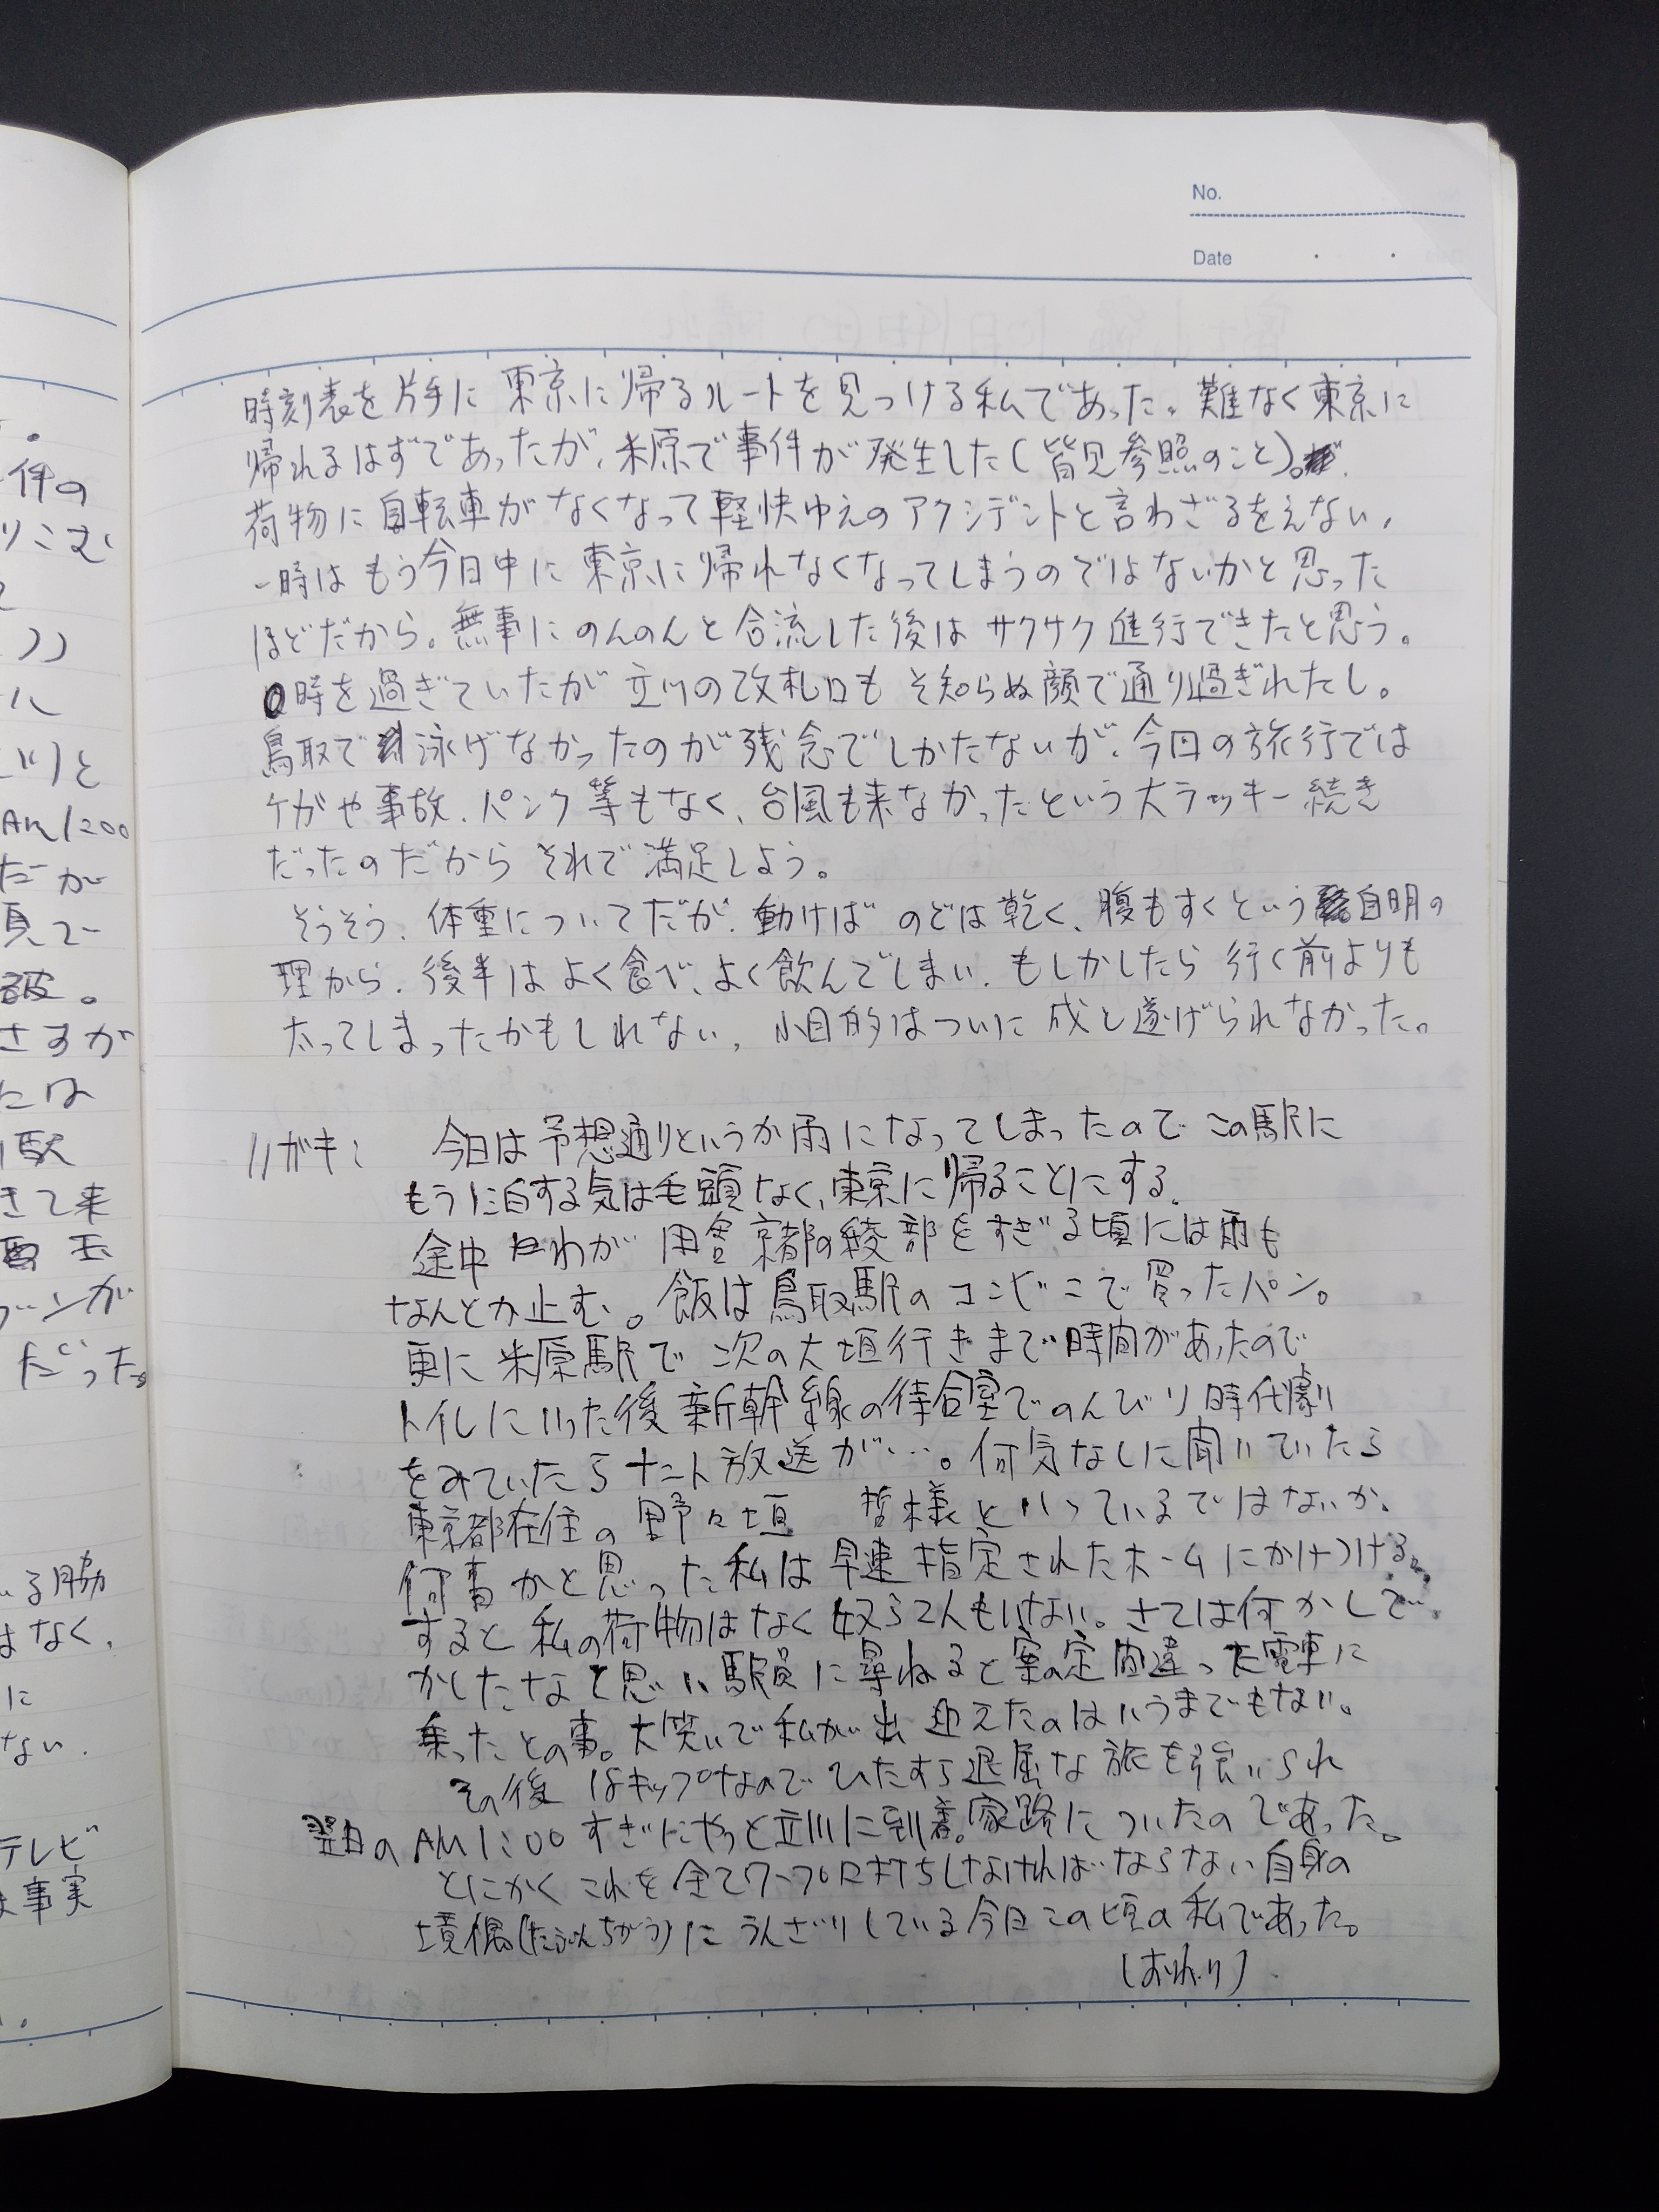 No.
Date
時刻表を片手に東京に帰るルートを見つける私であった。難なく東京に
帰れるはずであったが、米原で事件が発生した(皆見参照のこと)。
荷物に自転車がなくなって軽快ゆえのアクシデントと言わざるをえない。
一時はもう今日中に東京に帰れなくなってしまうのではないかと思った
ほどだから。無事にのんのんと合流した後はサクサク進行できたと思う。
0時を過ぎていたが立川の改札口もそ知らぬ顔で通り過ぎれたし。
鳥取で泳げなかったのが残念でしかたないが、今回の旅行では
ケガや事故、パンク等もなく、台風も来なかったという大ラッキー続き
だったのだからそれで満足しよう。
そうそう、体重についてだが、動けばのどは乾く、腹もすくという自明の
理から、後半はよく食べ、よく飲んでしまい、もしかしたら行く前よりも
太ってしまったかもしれない。小目的はついに成し遂げられなかった。
ハガキ: 今日は予想通りというか雨になってしまったのでこの駅に
もう1泊する気は毛頭なく、東京に帰ることにする。
途中わが田舎京都の綾部をすぎる頃には雨も
なんとか止む。飯は鳥取駅のコンビニで買ったパン。
更に米原駅で次の大垣行きまで時間があったので
トイレにいった後新幹線の待合室でのんびり時代劇
をみていたらナント放送が…。何気なしに聞いていたら
東京都在住の野々垣 哲様といっているではないか。
何事かと思った私は早速指定されたホームにかけつける。
すると私の荷物はなく奴ら2人もいない。さては何かしで
かしたなと思い駅員に尋ねると案の定間違った電車に
乗ったとの事。大笑いで私が出迎えたのはいうまでもない。
その後18キップなのでひたすら退屈な旅を強いられ
翌日のAM1:00すぎにやっと立川に到着。家路についたのであった。
とにかくこれを全てワープロ打ちしなければならない自身の
境偶(たぶんちがう)にうんざりしている今日この頃の私であった。
(おわり)